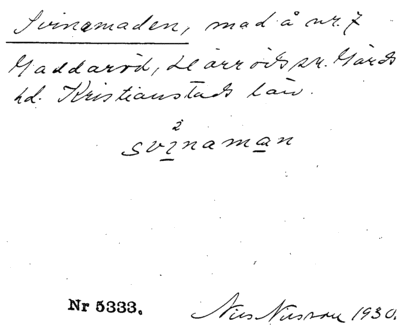 Svinamaden, mad å nr. 7
Maddaröd, Degeröds sn. Gärds
hd. Kristianstads län.
2
svinaman
Nr 5333.
Nils Nilsson 1930.